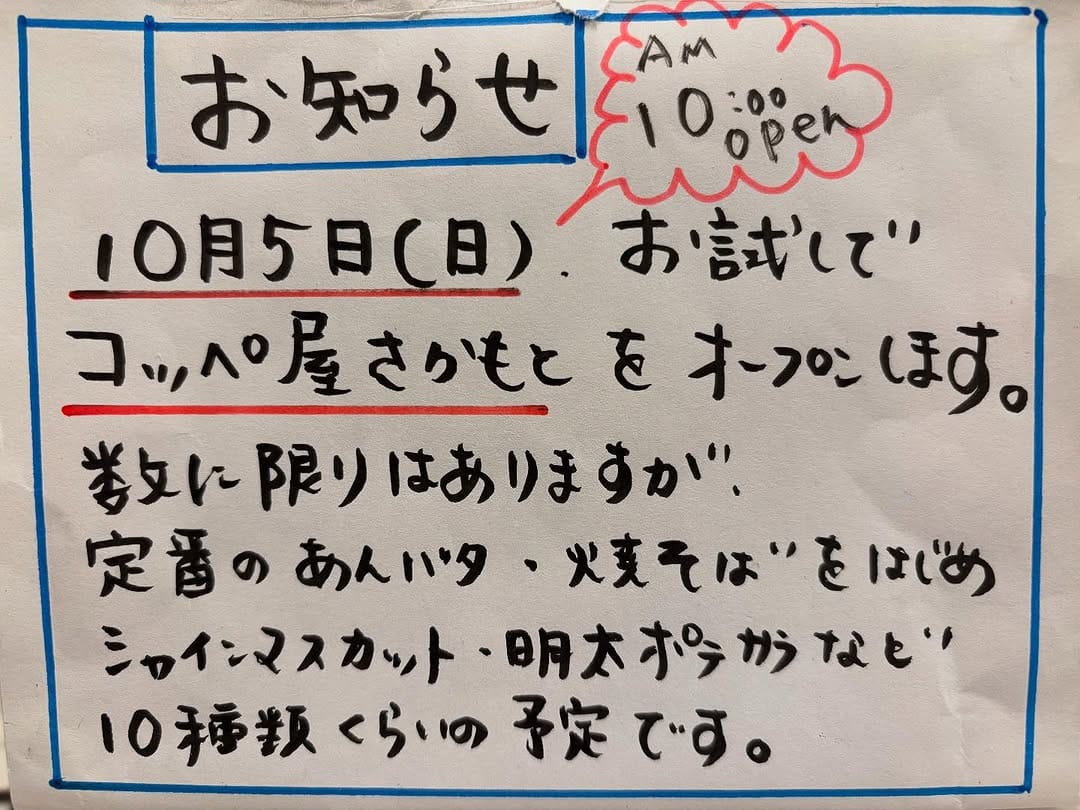 お知らせ
AM
10:00
open
10月5日(日)、お試しで
コッペ屋さかもとをオープンします。
数に限りはありますが、
定番のあんバタ・焼きそばをはじめ
シャインマスカット・明太ポテからなど
10種類くらいの予定です。